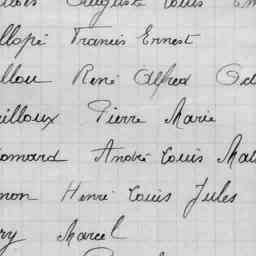 Auguste Louis
llopé Francis Ernest
llou René Alfred
illoux Pierre Marie
omard André Louis
non Henri Louis Jules
ry Marcel